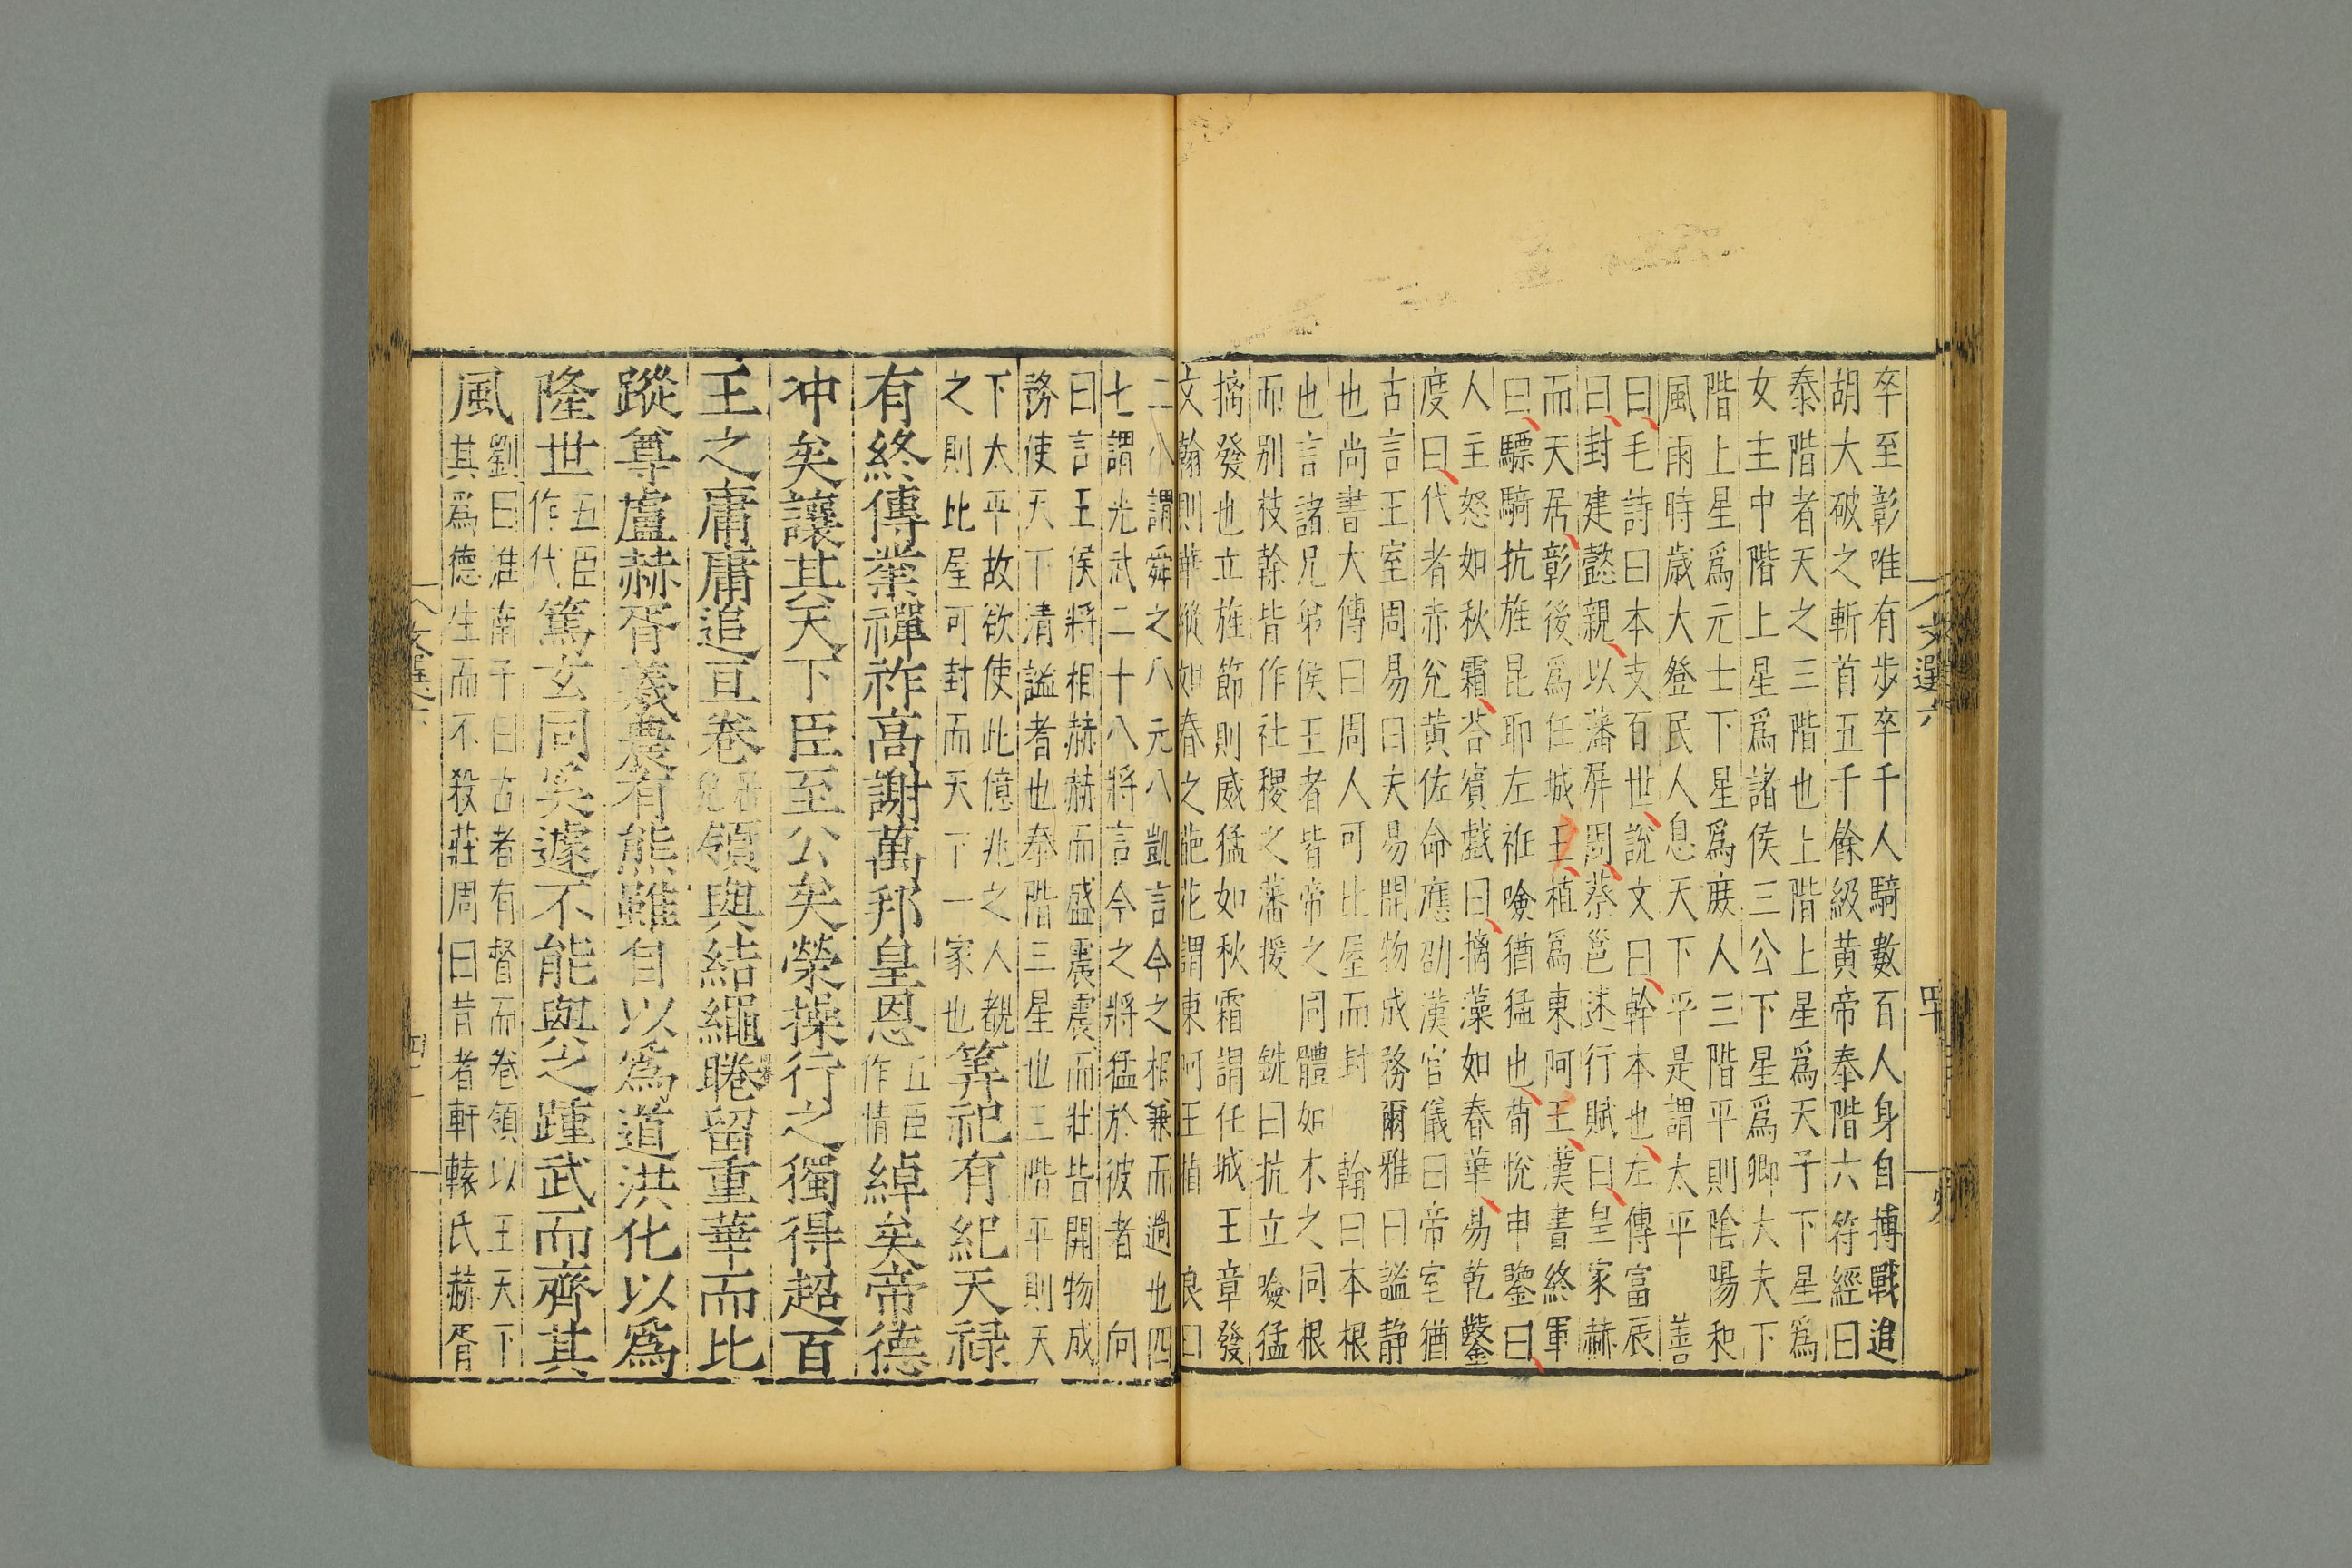 卒至彰唯有步卒千人騎數百人身自搏戰追
胡大破之斬首五千餘級黃帝泰階六符經曰
泰階者天之三階也上階上星爲天子下星爲
女主中階上星爲諸侯三公下星爲卿大夫下
階上星爲元士下星爲庶人三階平則陰陽和
風雨時歲大登民人息天下平是謂太平 善
曰毛詩曰本支百世說文曰幹本也左傳富辰
曰封建懿親以藩屏周蔡邕述行賦曰皇家赫
而天居彰後爲任城王植爲東阿王漢書終軍
曰驃騎抗旌昆耶左衽嶮猶猛也荀悅申鑒曰
人主怒如秋霜荅賓戲曰摛藻如春華易乾鑿
度曰代者赤兊黃佐命應劭漢官儀曰帝室猶
古言王室周易曰夫易開物成務爾雅曰謐靜
也尚書大傳曰周人可比屋而封 翰曰本根
也言諸兄弟侯王者皆帝之同體如木之同根
而別枝幹皆作社稷之藩援 銑曰抗立嶮猛
摛發也立旌節則威猛如秋霜謂任城王章發
文翰則華縱如春之葩花謂東阿王植 良曰
二八謂舜之八元八凱言今之相兼而過也四
七謂光武二十八將言今之將猛於彼者 向
曰言王侯將相赫赫而盛震震而壯皆開物成
務使天下清謐者也泰階三星也三階平則天
下太平故欲使此億兆之人覩
之則比屋可封而天下一家也
筭祀有紀天祿
有終傳業禪祚高謝萬邦皇恩五臣作情綽矣帝德
冲矣讓其天下臣至公矣榮操行之獨得超百
王之庸庸追亘卷領與結繩睠留重華而比
蹤尊盧赫胥羲農有熊雖自以爲道洪化以爲
隆世五臣作代篤玄同奚遽不能與之踵武而齊其
風
劉曰淮南子曰古者有督而卷領以王天下
其爲德生而不殺莊周曰昔者軒轅氏赫胥
文選六
四十